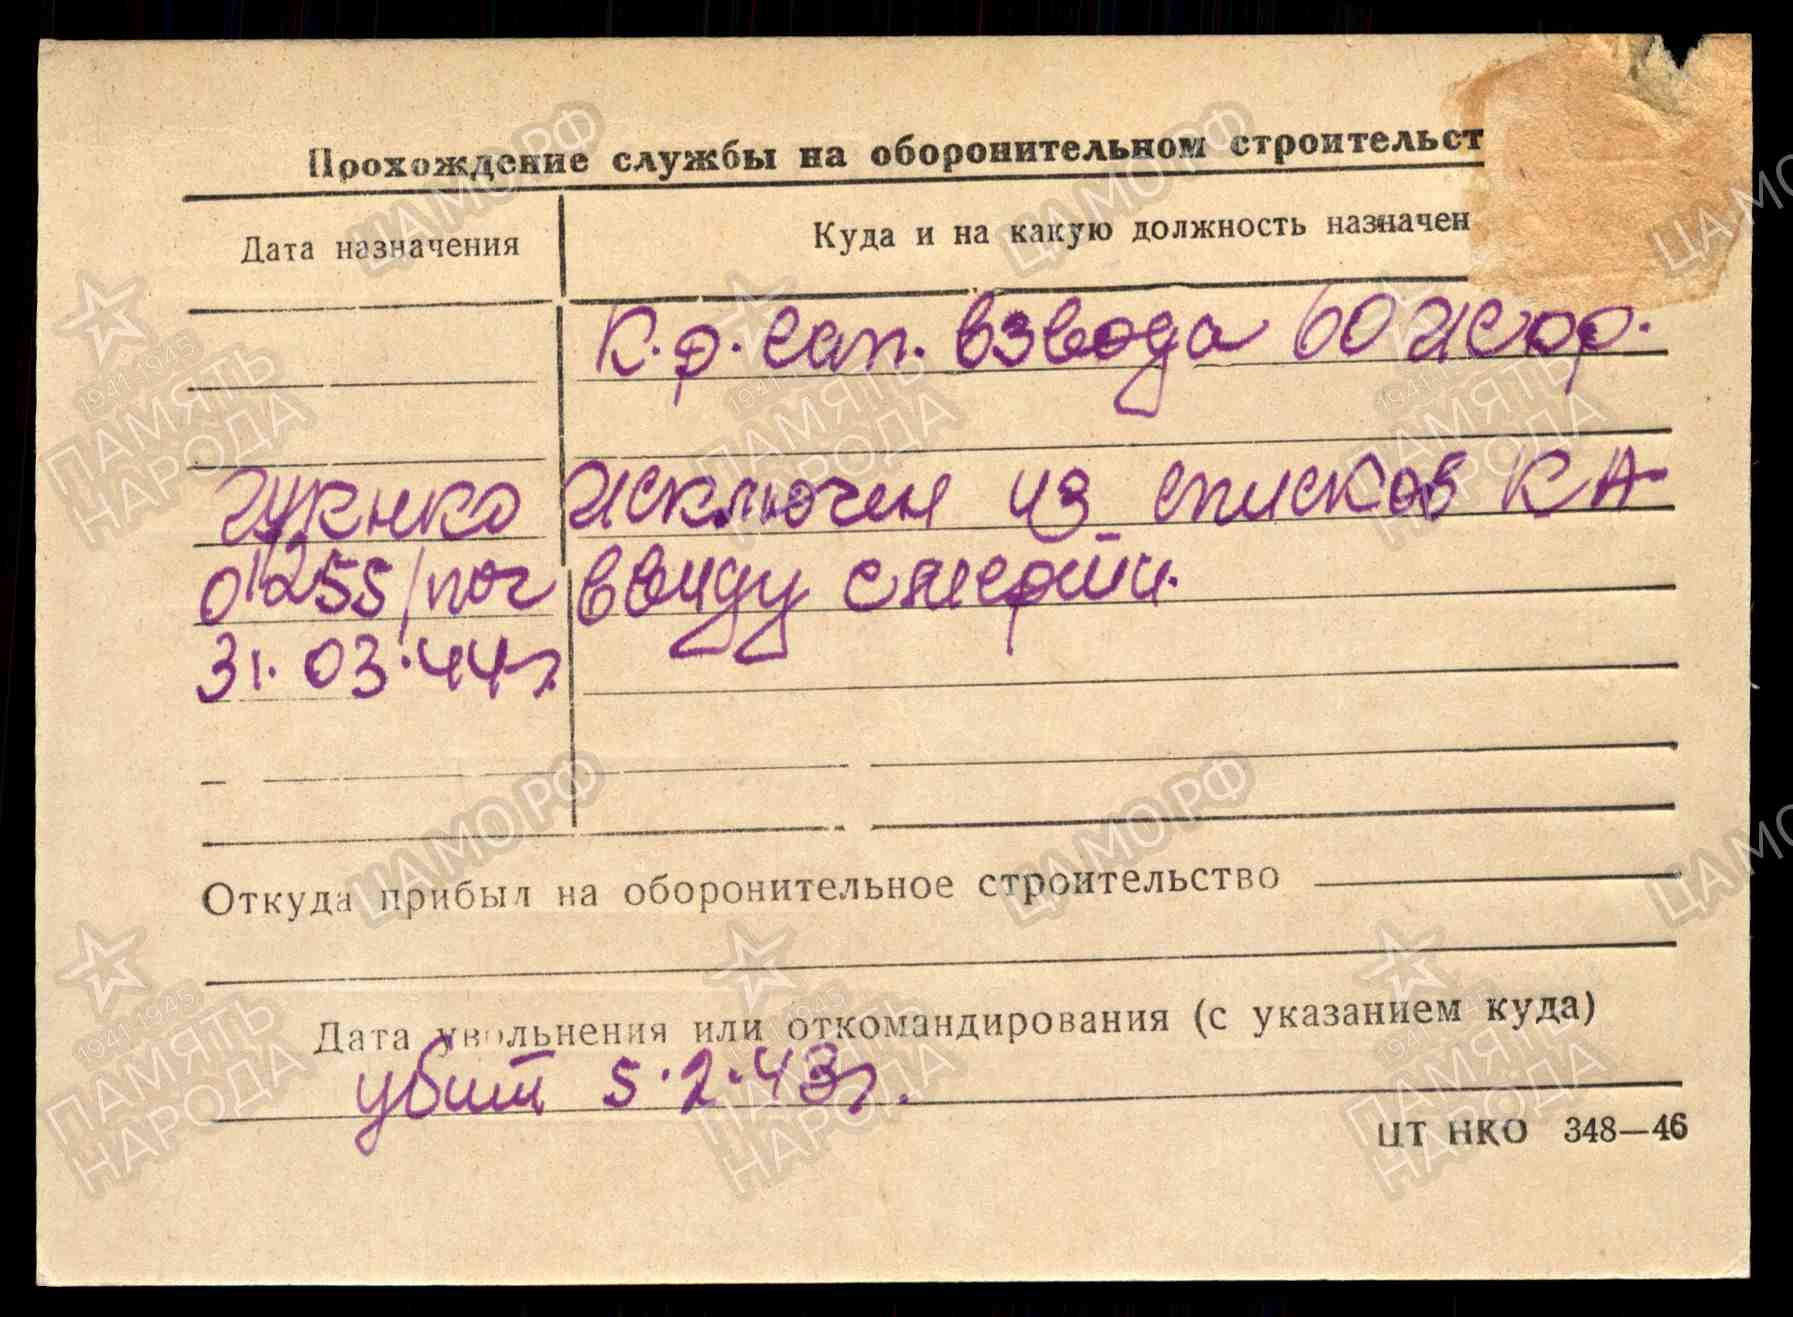 Прохождение службы на оборонительном строительст
Дата назначения
Куда и на какую должность назначен
К-р. сап. взвода 60
ГУК НКО исключен из списков КА
01255/пог ввиду смерти.
31.03.44г.
Откуда прибыл на оборонительное строительство
Дата увольнения или откомандирования (с указанием куда)
убит 5.2.43г.
ЦТ НКО 348—46
ЦАМО.РФ
1941 1945
ПАМЯТЬ
НАРОДА